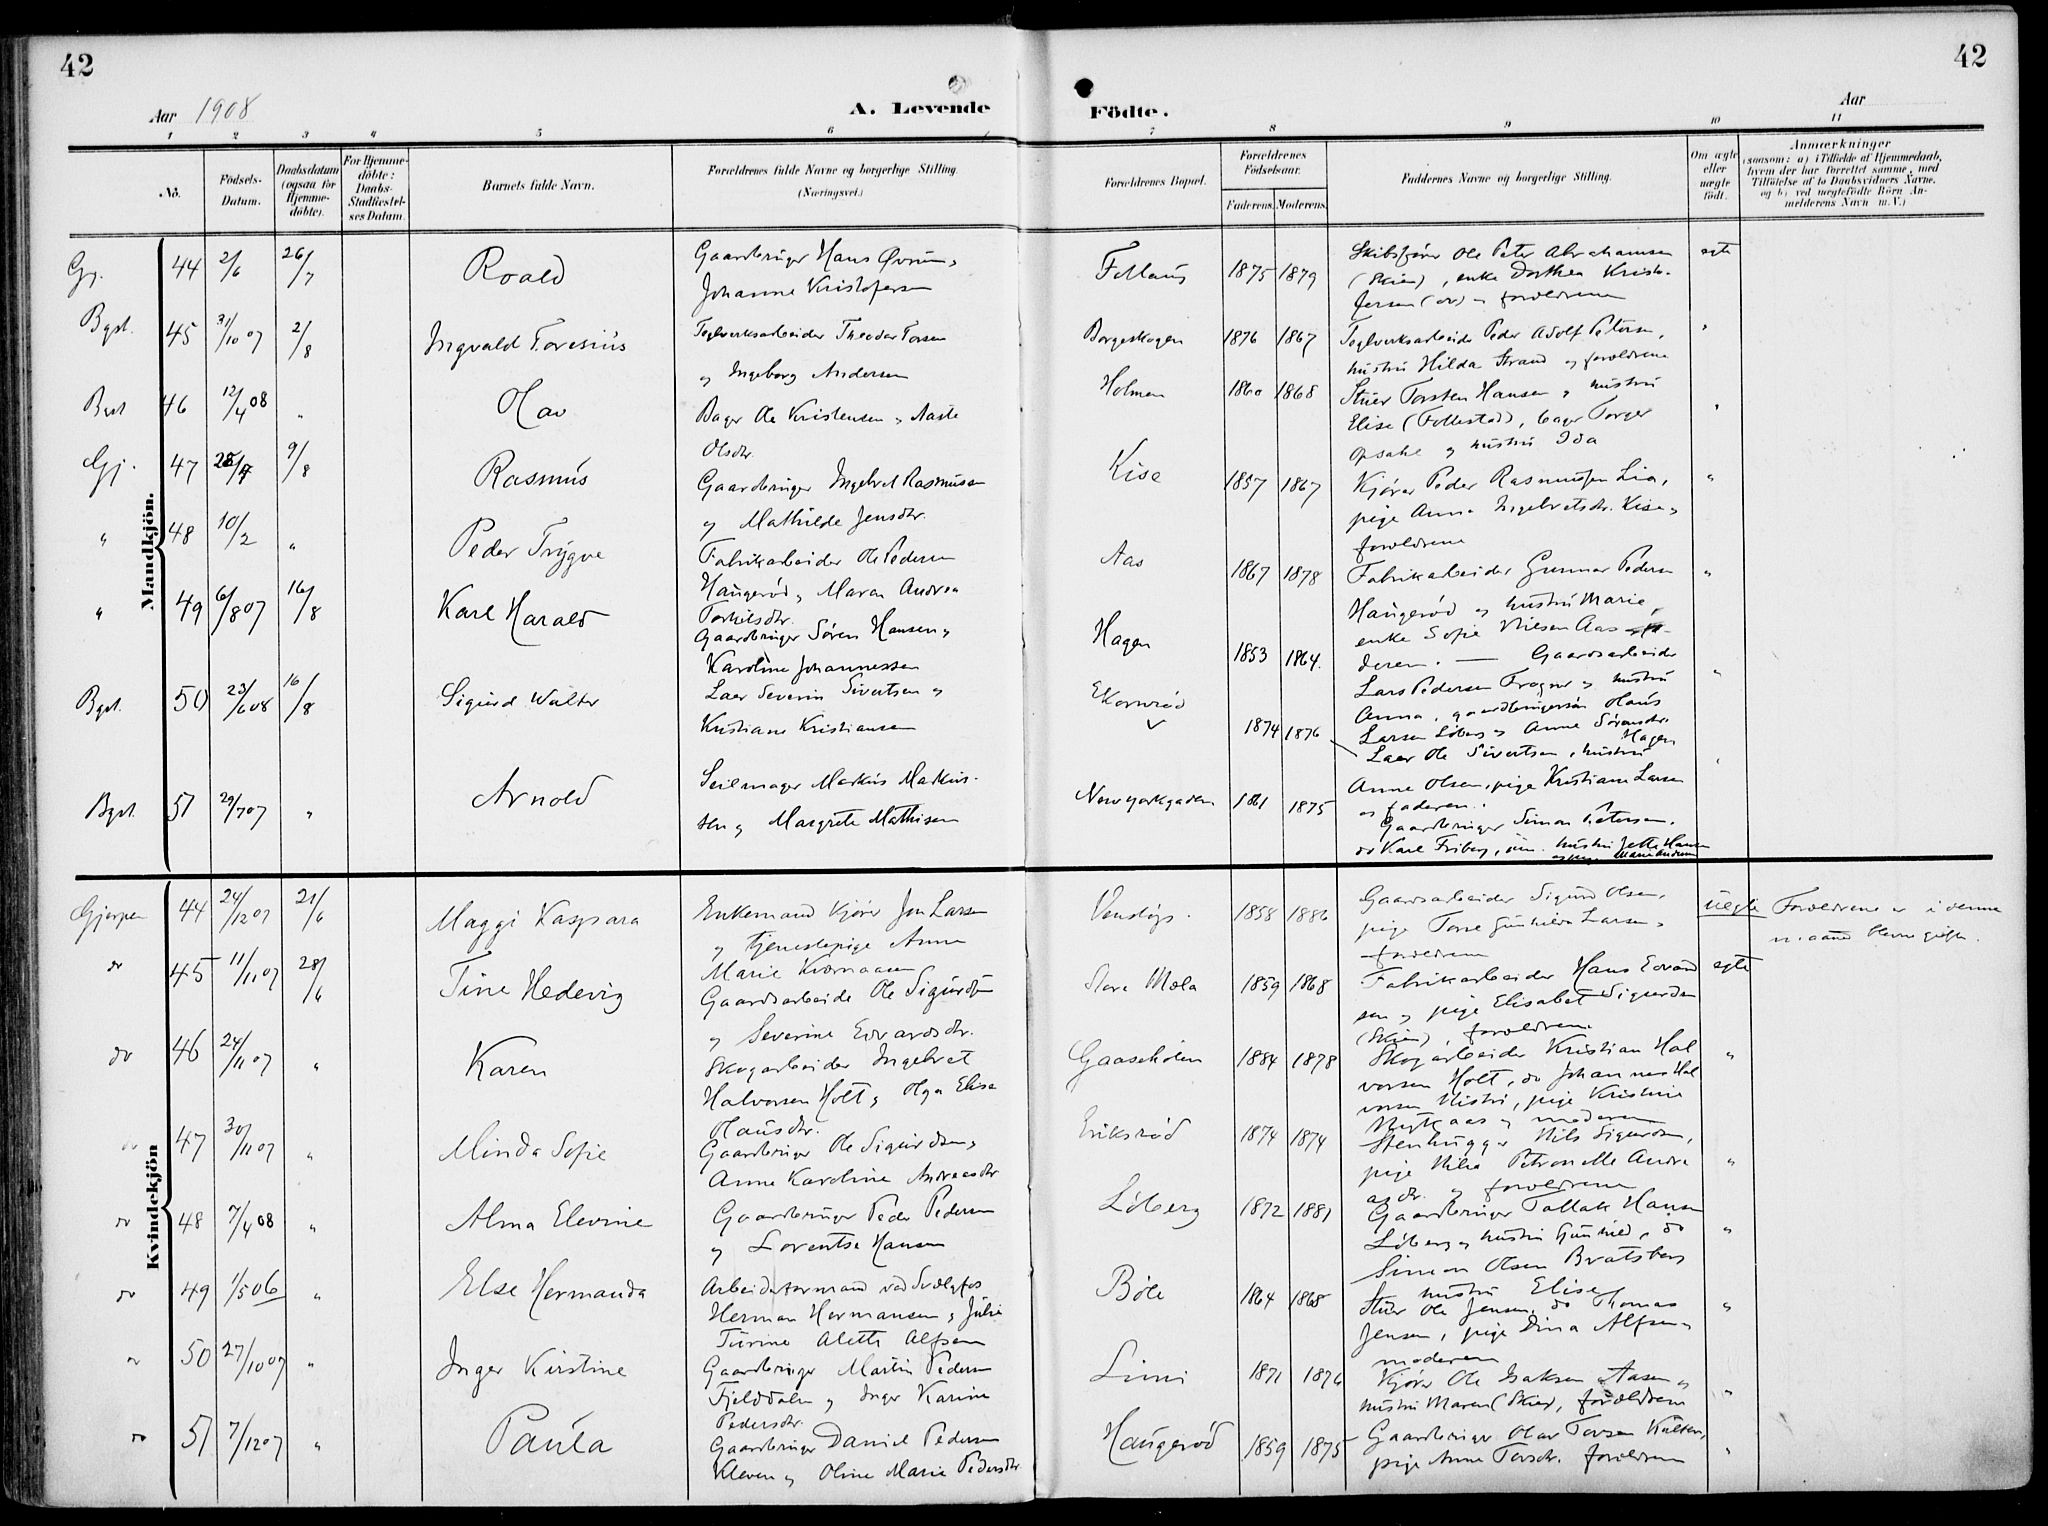 42
42
Aar 1908
A. Levende
Födte.
Aar
1 2 3 4 5 6 7 8 9 10 11
No.
Födsels-Datum.
Daabsdatum (ogsaa for Hjemmedöbte).
For Hjemmedöbte: Daabs-Stadfæstelses Datum.
Barnets fulde Navn.
Forældrenes fulde Navne og borgerlige Stilling. (Næringsvei.)
Forældrenes Bopæl.
Forældrenes Födselsaar.
Faderens. Moderens.
Faddernes Navne og borgerlige Stilling.
Om ægte eller uægte födt.
Anmærkninger
(saasom: a) i Tilfælde af Hjemmedaab, hvem der har forrettet samme, med Tilföielse af to Daabsvidners Navne, og b) ved uægtefödte Börn Anmelderens Navn m. V.)
Mandkjön.
Gj. 44 2/6 26/7 Roald
Gaardbruger Hans Øvrum,
Johanne Kristofersen
1875 1879
Skibsfører Ole Peter Abrahamsen
(Skien), enke Dorthea Kristo-
fersen (do) og forældrene
egte
Bgst. 45 31/10 07 2/8 Ingvald Toresius
Teglverksarbeider Theodor Torsen
og Ingeborg Andersen
Borgeskogen 1876 1867
Teglverksarbeider Peder Adolf Petersen,
hustru Hilda Strand og forældrene
"
46 12/4 08 " Olav
Bager Ole Kristensen og Aaste
Olsdtr.
Holmen 1860 1868
Stuer Torsten Hansen og hustru
Elise (Follestad), bager Torger
Opsahl og hustru Ida
"
Gj. 47 9/8 Rasmus
Gaardbruger Ingebret Rasmussen
og Mathilde Jensdtr.
Kise 1857 1867
Kjører Peder Rasmussen Lia,
pige Anna Ingebretsdtr. Kise og
forældrene
"
" 48 10/2 " Peder Trygve
Fabrikarbeider Ole Pedersen
Haugerød og Maren Andrea
Torkilsdtr.
Aas 1867 1878
Fabrikarbeider Gunnar Pedersen
Haugerød og hustru Marie,
enke Sofie Nilsen Aas
deren.
"
" 49 6/8 07 16/8 Karl Harald
Gaardbruger Søren Hansen og
Karoline Johannessen
Hagen 1853 1864.
Gaardsarbeider
Lars Pedersen Frogner og hustru
Anna, gaardbrugersøn Olaus
Larsen Løberg og Anne Sørensdtr.
Hagen
"
Bgst. 50 23/6 08 16/8 Sigurd Walter
Laer Severin Sivertsen og
Kristiane Kristiansen
Ekornrød 1874 1876
Laer Ole Sivertsen, hustru
Anne Olsen, pige Kristiane Larsen
og faderen.
Bgst. 51 29/7 07 " Arnold
Seilmager Markus Markus-
sen og Margrete Mathisen
Newyorkgaden 1861 1875
Gaardbruger Simon Petersen,
do Karl Friberg, hustru Jette Hansen
Kvindekjön
Gjerpen 44 24/12 07 21/6 Maggi Kaspara
Enkemand Kjører Jon Larsen
og tjenestepige Anne
Marie Kværnaasen
1858 1886
Gaardsarbeider Sigurd Olsen,
pige Tone Gunhilda Larsen,
forældrene
uegte
Forældrene er i denne
maaned blevne gifte.
do 45 11/11 07 28/6 Tine Hedevig
Gaardsarbeider Ole Sigurdsen
og Severine Edvardsdtr.
Store Mæla 1859 1868
Fabrikarbeider Hans Edvard
sen og pige Elisabet Sigurdsen
(Skien), forældrene
egte
do 46 24/11 07 " Karen
Skogarbeider Ingebret
Halvorsen Holt og Olga Elise
Olausdtr.
Gaaseholen 1884 1878
Skogarbeider Kristian Hal
vorsen Holt, do Johannes Hal
vorsen, pige Kristine
og moderen
"
do 47 30/11 07 " Minda Sofie
Gaardbruger Ole Sigurdsen og
Anne Karoline Andreasdtr
Eriksrød 1874 1874
Stenhugger Nils Sigurdsen,
pige Petronelle Andre
asdtr. og forældrene
"
do 48 7/4 08 " Alma Elevine
Gaardbruger Peder Pedersen
og Lorentse Hansen
Løberg 1872 1881
Gaardbruger Tallak Hansen
Løberg og hustru Gunhild, do
Simon Olsen Bratsberg
hustru Elise
"
do 49 1/5 06 " Else Hermanda
Arbeidsformand ved Svælgfos
Herman Hermansen og Julie
Turine Alette Alfsen
Bøle 1864 1868
Stuer Ole Jensen, do Thomas
Jensen, pige Dina Alfsen og
moderen
"
do 50 27/10 07 " Inger Kirstine
Gaardbruger Martin Pedersen
Fjelddalen og Inger Karine
Pedersdtr.
Limi 1871 1876
Kjører Ole Isaksen Aasen og
hustru Maren (Skien), forældrene
"
do 51 7/12 07 " Paula
Gaardbruger Daniel Pedersen
Kleven og Oline Marie Pedersdtr.
Haugerød 1859 1875
Gaardbruger Olav Torsen
pige Anne Torsdtr. forældrene
"